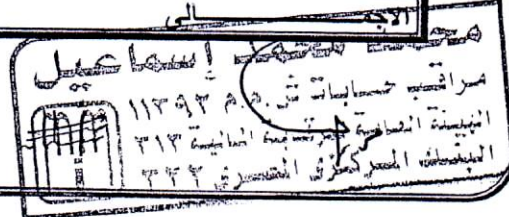 الاجمــــــــالى
محمد إسماعيل
مراقب حسابات س.م.م ١١٣٩٣
الهيئة العامة للرقابة المالية ٣١٣
البنك المركزى المصرى ٣٢٢